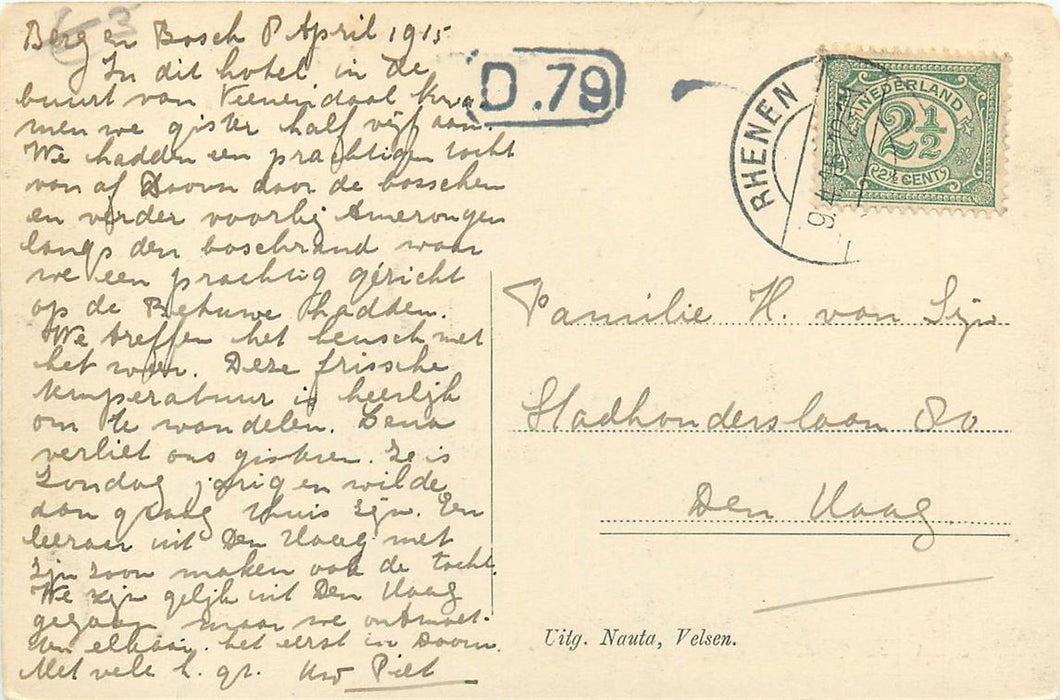 Berg en Bosch 8 April 1915
In dit hotel in de
buurt van Veenendaal kwa-
men we gister half vijf aan.
We hadden een prachtigen tocht
van af Doorn door de bosschen
en verder voorbij Amerongen
langs den boschrand waar
we een prachtig gezicht
op de Betuwe hadden.
We treffen het heusch met
het weer. Deze frissche
temperatuur is heerlijk
om te wandelen. Lena
verliet ons gisteren. Ze is
Zondag jarig en wilde
dan graag thuis zijn. Een
leeraar uit Den Haag met
zijn zoon maken ook de tocht.
We zijn gelijk uit Den Haag
gegaan maar we ontmoet-
ten elkaar het eerst in Doorn.
Met vele h. gr. Uw Piet
D.79
RHENEN
NEDERLAND
2½
2½ CENT
Familie H. van Sijn
Stadhouderslaan 80
Den Haag
Uitg. Nauta, Velsen.